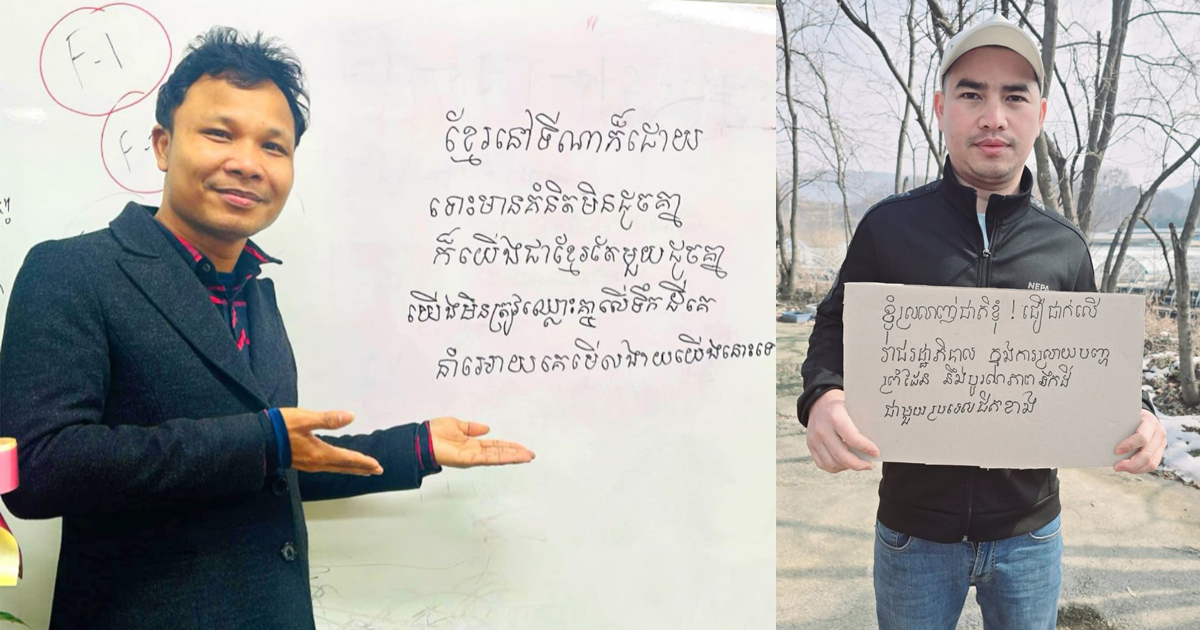 F-1
F-
ខ្មែរនៅទីណាក៏ដោយ
ទោះមានគំនិតមិនដូចគ្នា
ក៏យើងជាខ្មែរតែមួយដូចគ្នា
យើងមិនត្រូវឈ្លោះគ្នាលើទឹកដីគេ
នាំអោយគេមើលងាយយើងនោះទេ
NEPA
ខ្ញុំស្រលាញ់ជាតិខ្ញុំ! ជឿជាក់លើ
រាជរដ្ឋាភិបាល ក្នុងការស្រាយបញ្ហា
ព្រំដែន និងបូរណភាពទឹកដី
ជាមួយប្រទេសជិតខាង